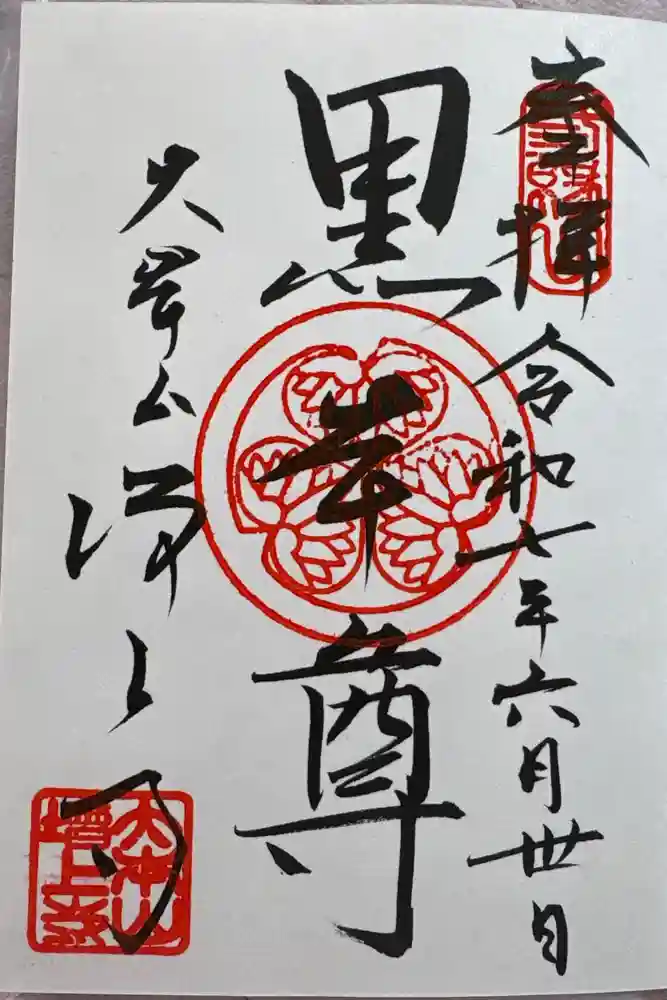 奉拝 令和七年六月卅日
黒本尊
大本山 増上寺
大本山
増上寺